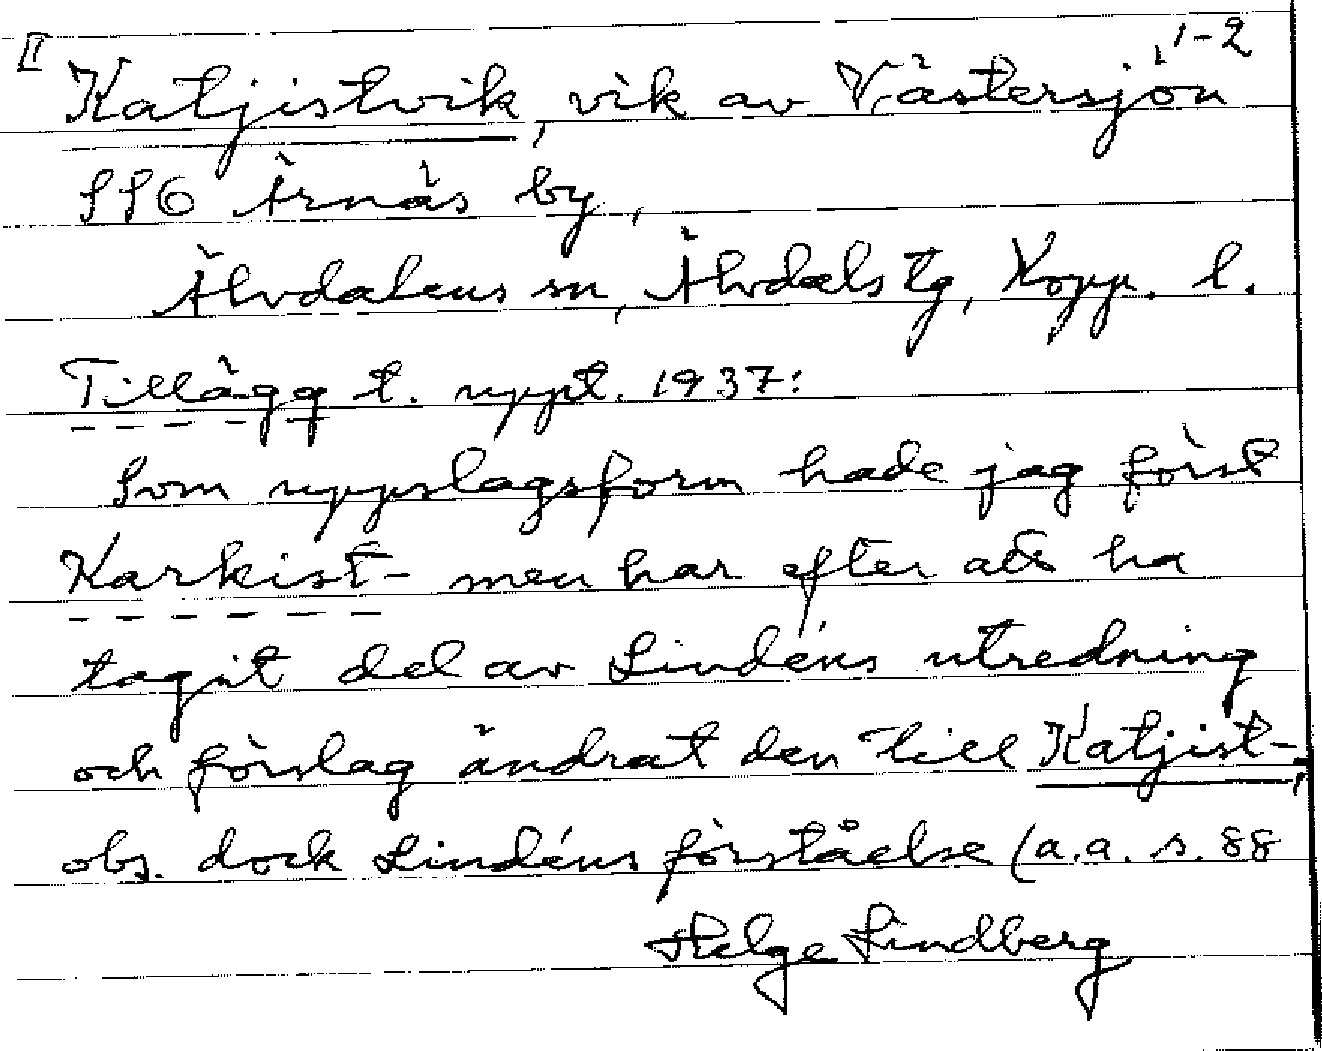 II
1-2
Katjistvik, vik av V. ästersjön
SSO Ärnäs by,
Älvdalens sn, Älvdals tg, Kopp. l.
Tillägg t. uppt. 1937:
Som uppslagsform hade jag först
Karkist- men har efter att ha
tagit del av Lindéns utredning
och förslag ändrat den till Katjist-,
obs. dock Lindéns förståelse (a.a. s. 88
Helge Lindberg